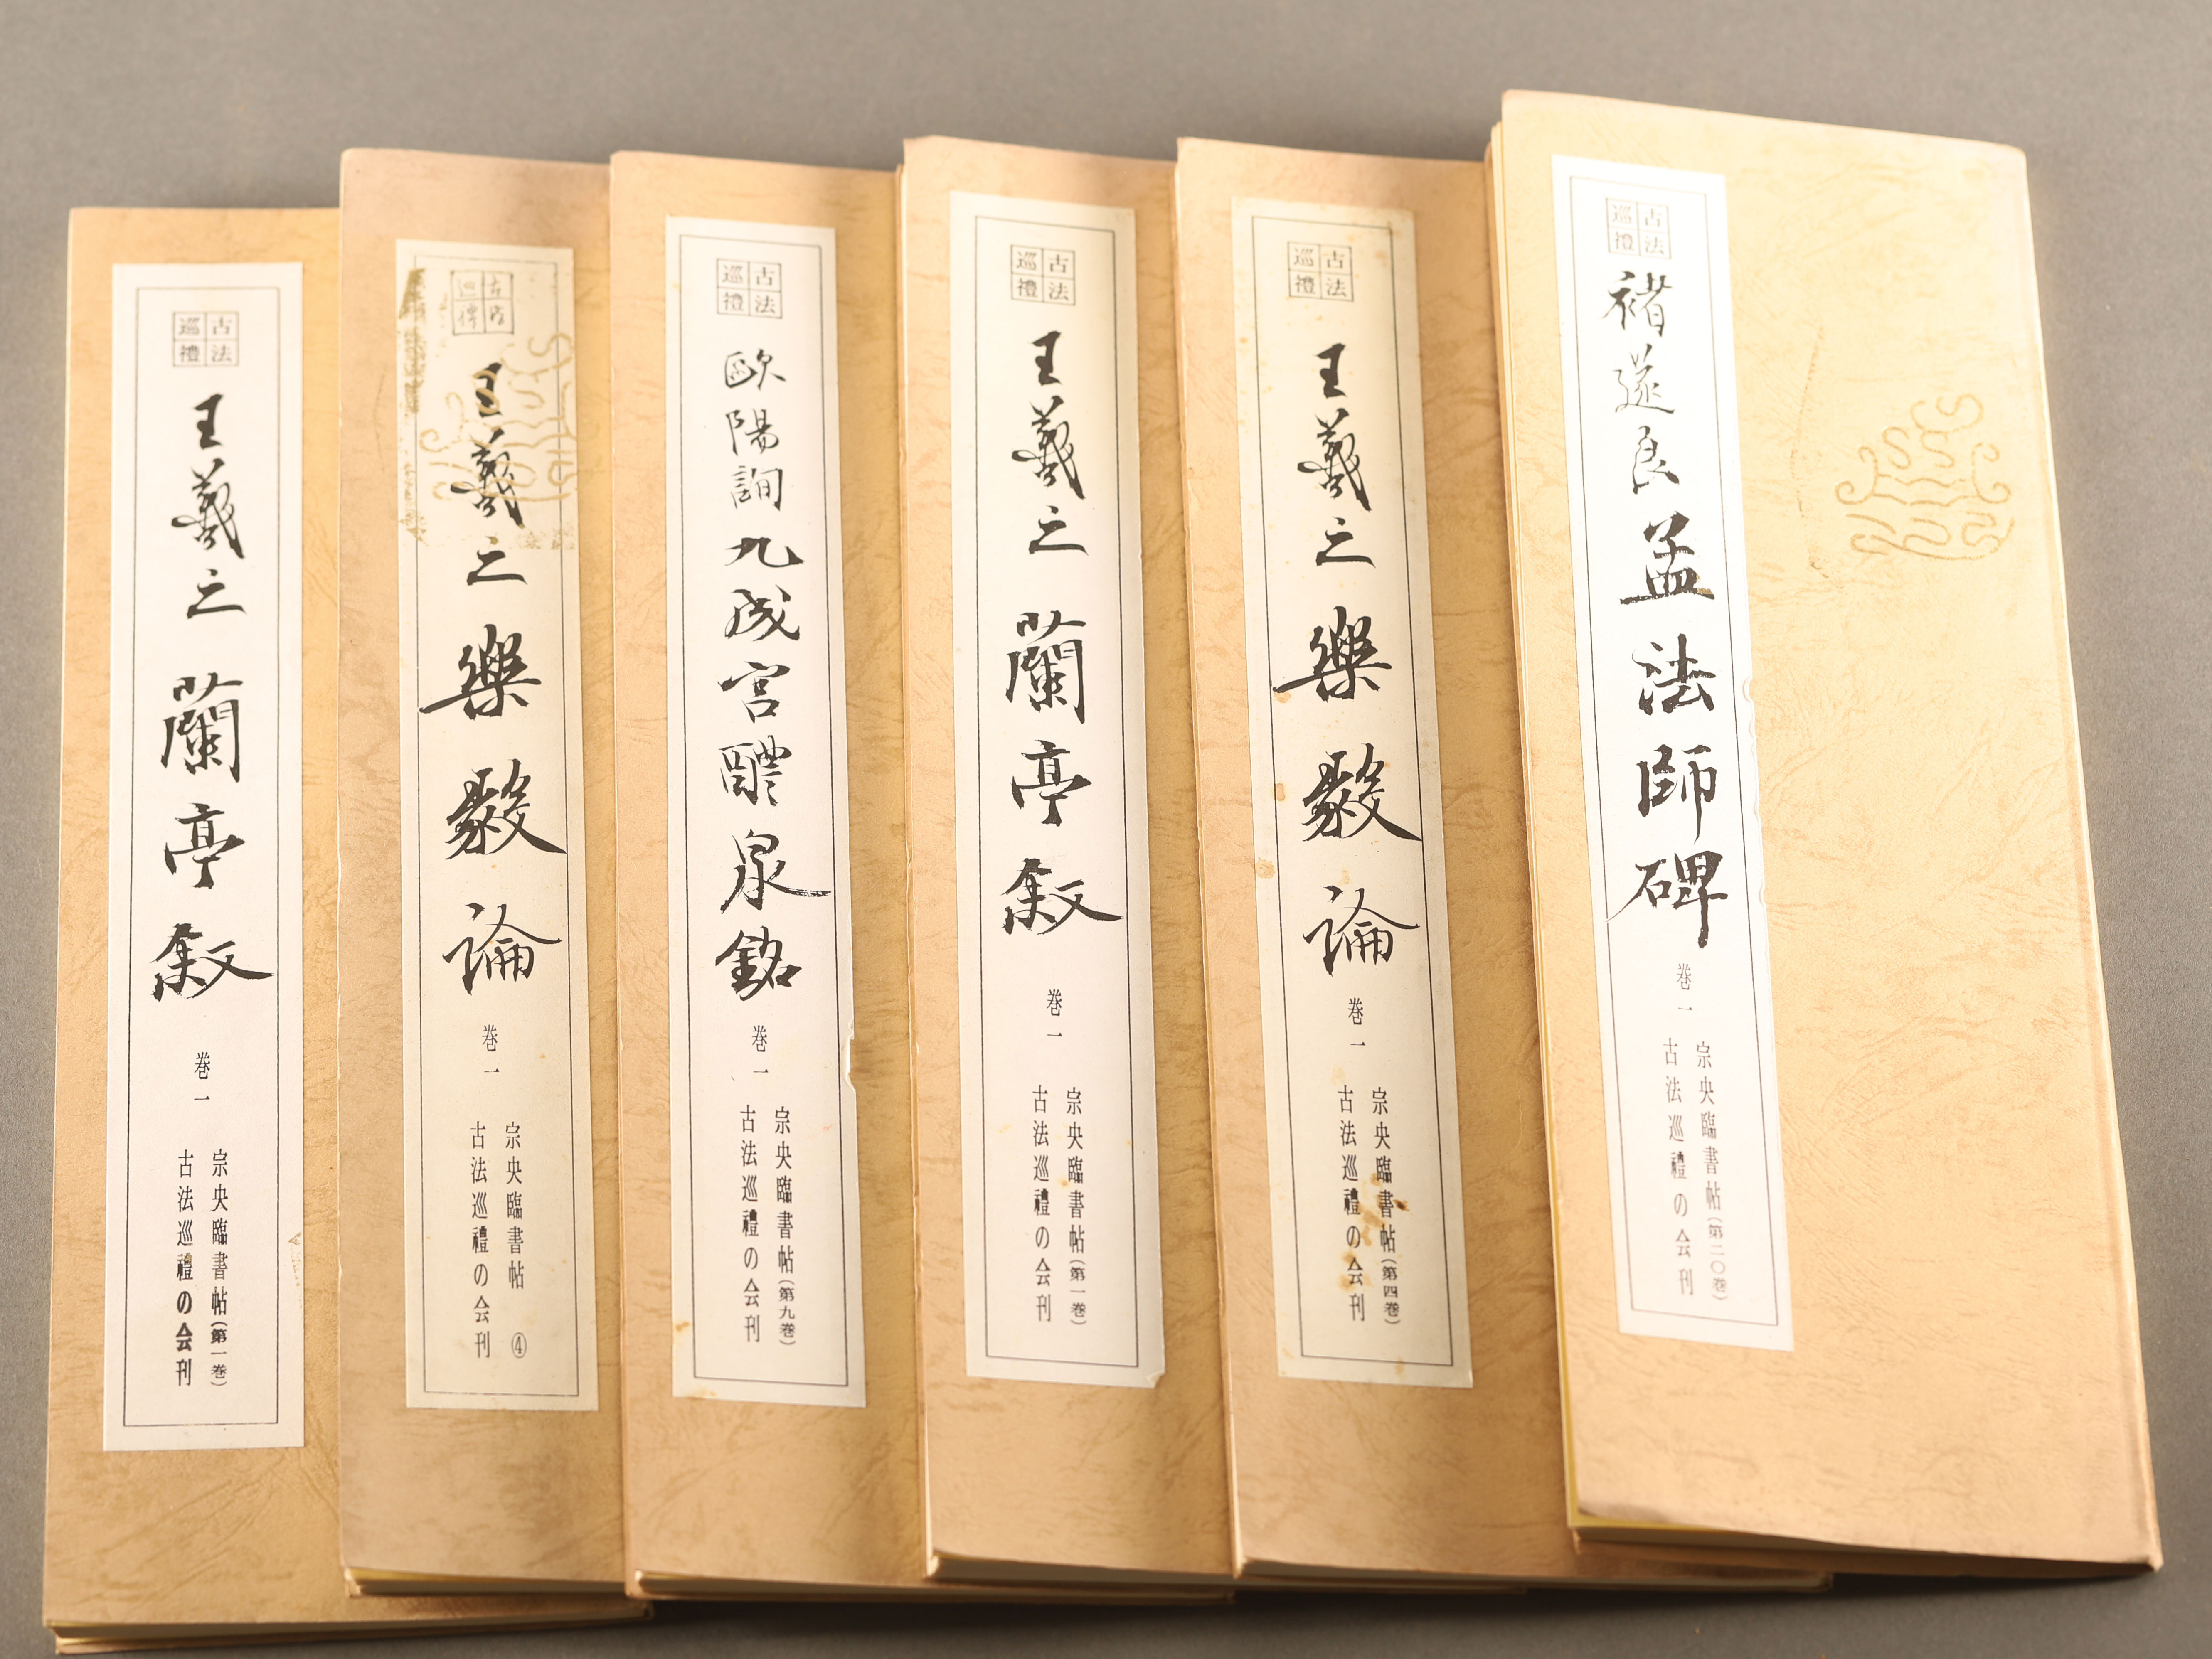 古法巡禮
王羲之 蘭亭叙 巻一
宗央臨書帖(第一巻)
古法巡禮の会刊
王羲之 樂毅論 巻一
宗央臨書帖 ④
古法巡禮の会刊
古法巡禮
歐陽詢 九成宮醴泉銘 巻一
宗央臨書帖(第九巻)
古法巡禮の会刊
古法巡禮
王羲之 蘭亭叙 巻一
宗央臨書帖(第一巻)
古法巡禮の会刊
古法巡禮
王羲之 樂毅論 巻一
宗央臨書帖(第四巻)
古法巡禮の会刊
古法巡禮
褚遂良 孟法師碑 巻一
宗央臨書帖(第二〇巻)
古法巡禮の会刊